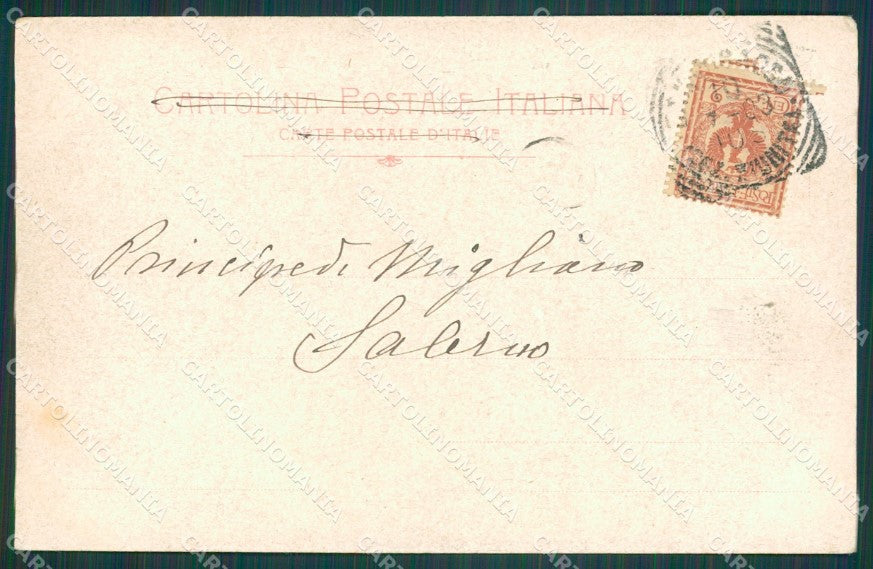 CARTOLINA POSTALE ITALIANA
CARTE POSTALE D'ITALIE
Principe di Migliano
Salerno
CARTOLINOMANIA